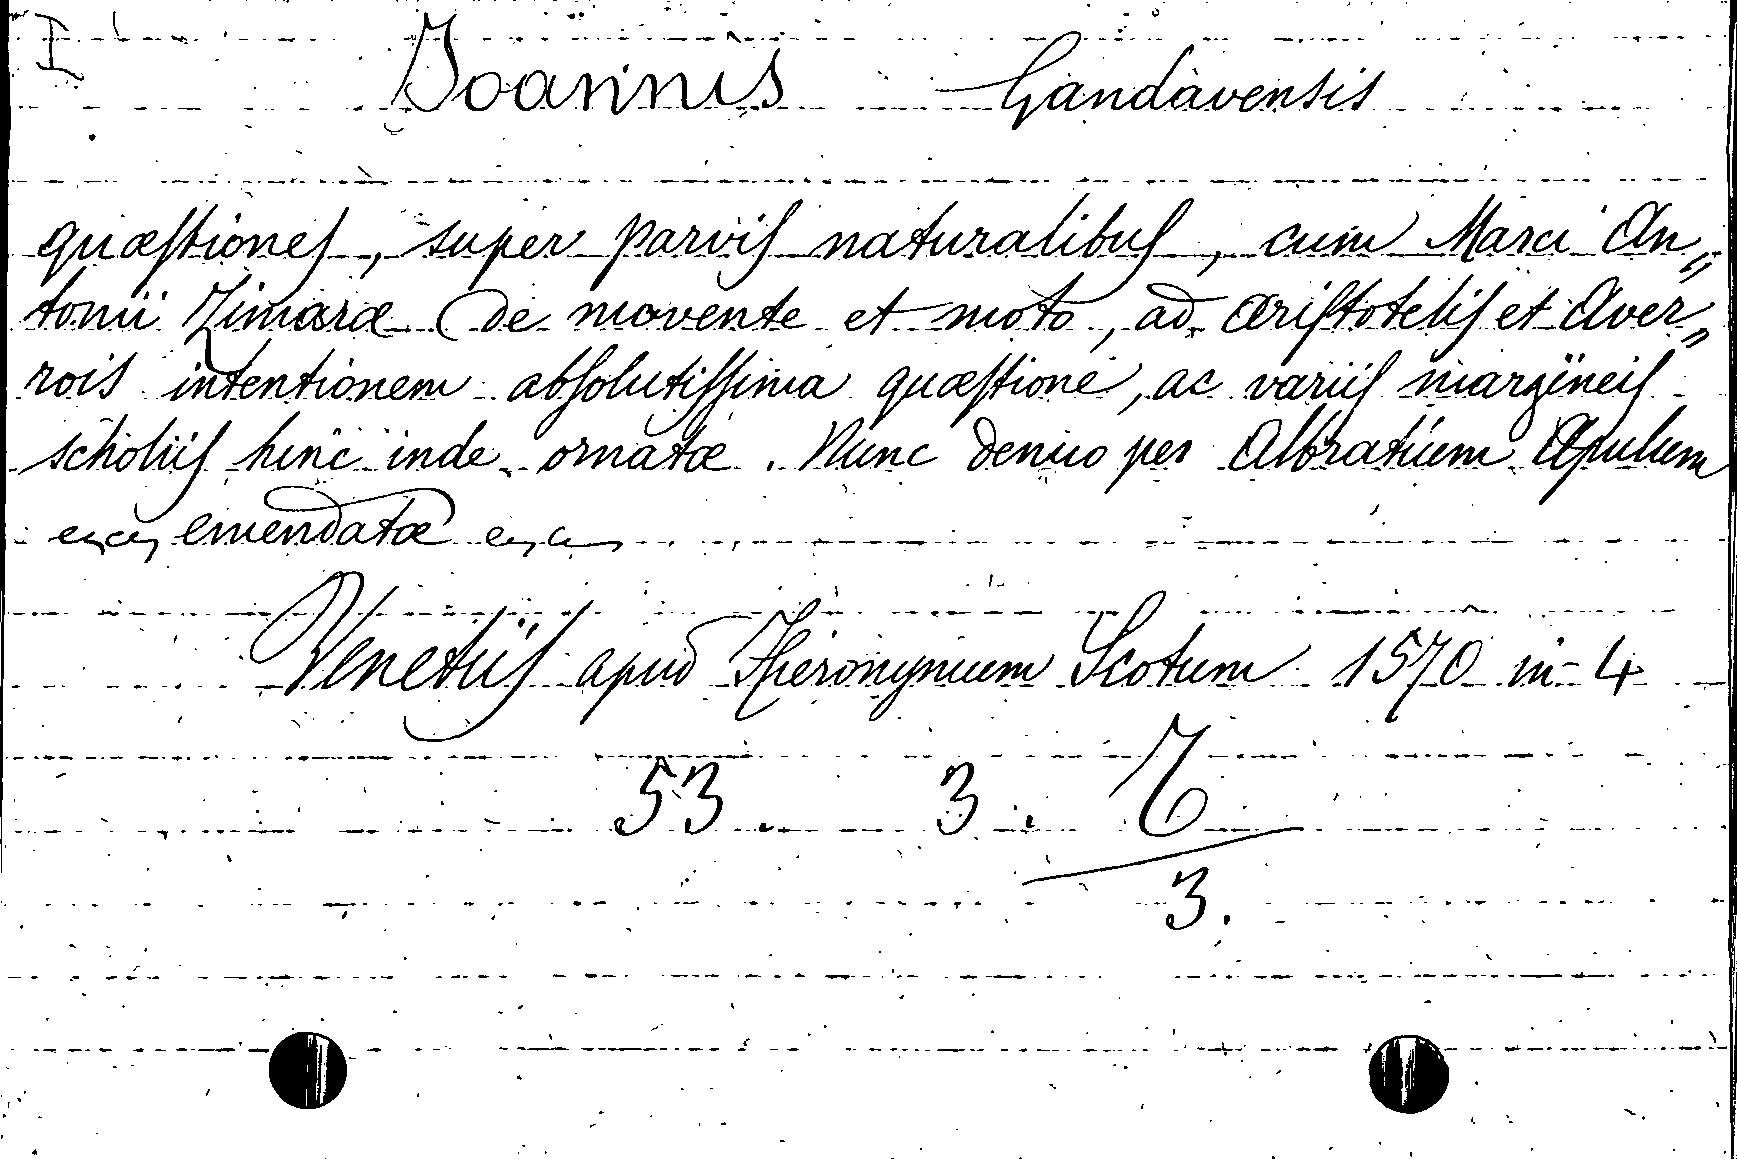 I
Joannis Gandavensis
quæſtioneſ, super parviſ naturalibuſ, cum Marci An„
tonii Zimaræ de movente et moto, ad Ariſtoteliſ et Aver„
rois intentionem abſolutiſſima quæſtione, ac variiſ margineiſ
scholiiſ hinc inde ornatæ. Nunc denuo per Albratium Apulum
emendatæ
Venetiiſ apud Hieronymum Scotum 1570 in-4
53. 3. Z
3.